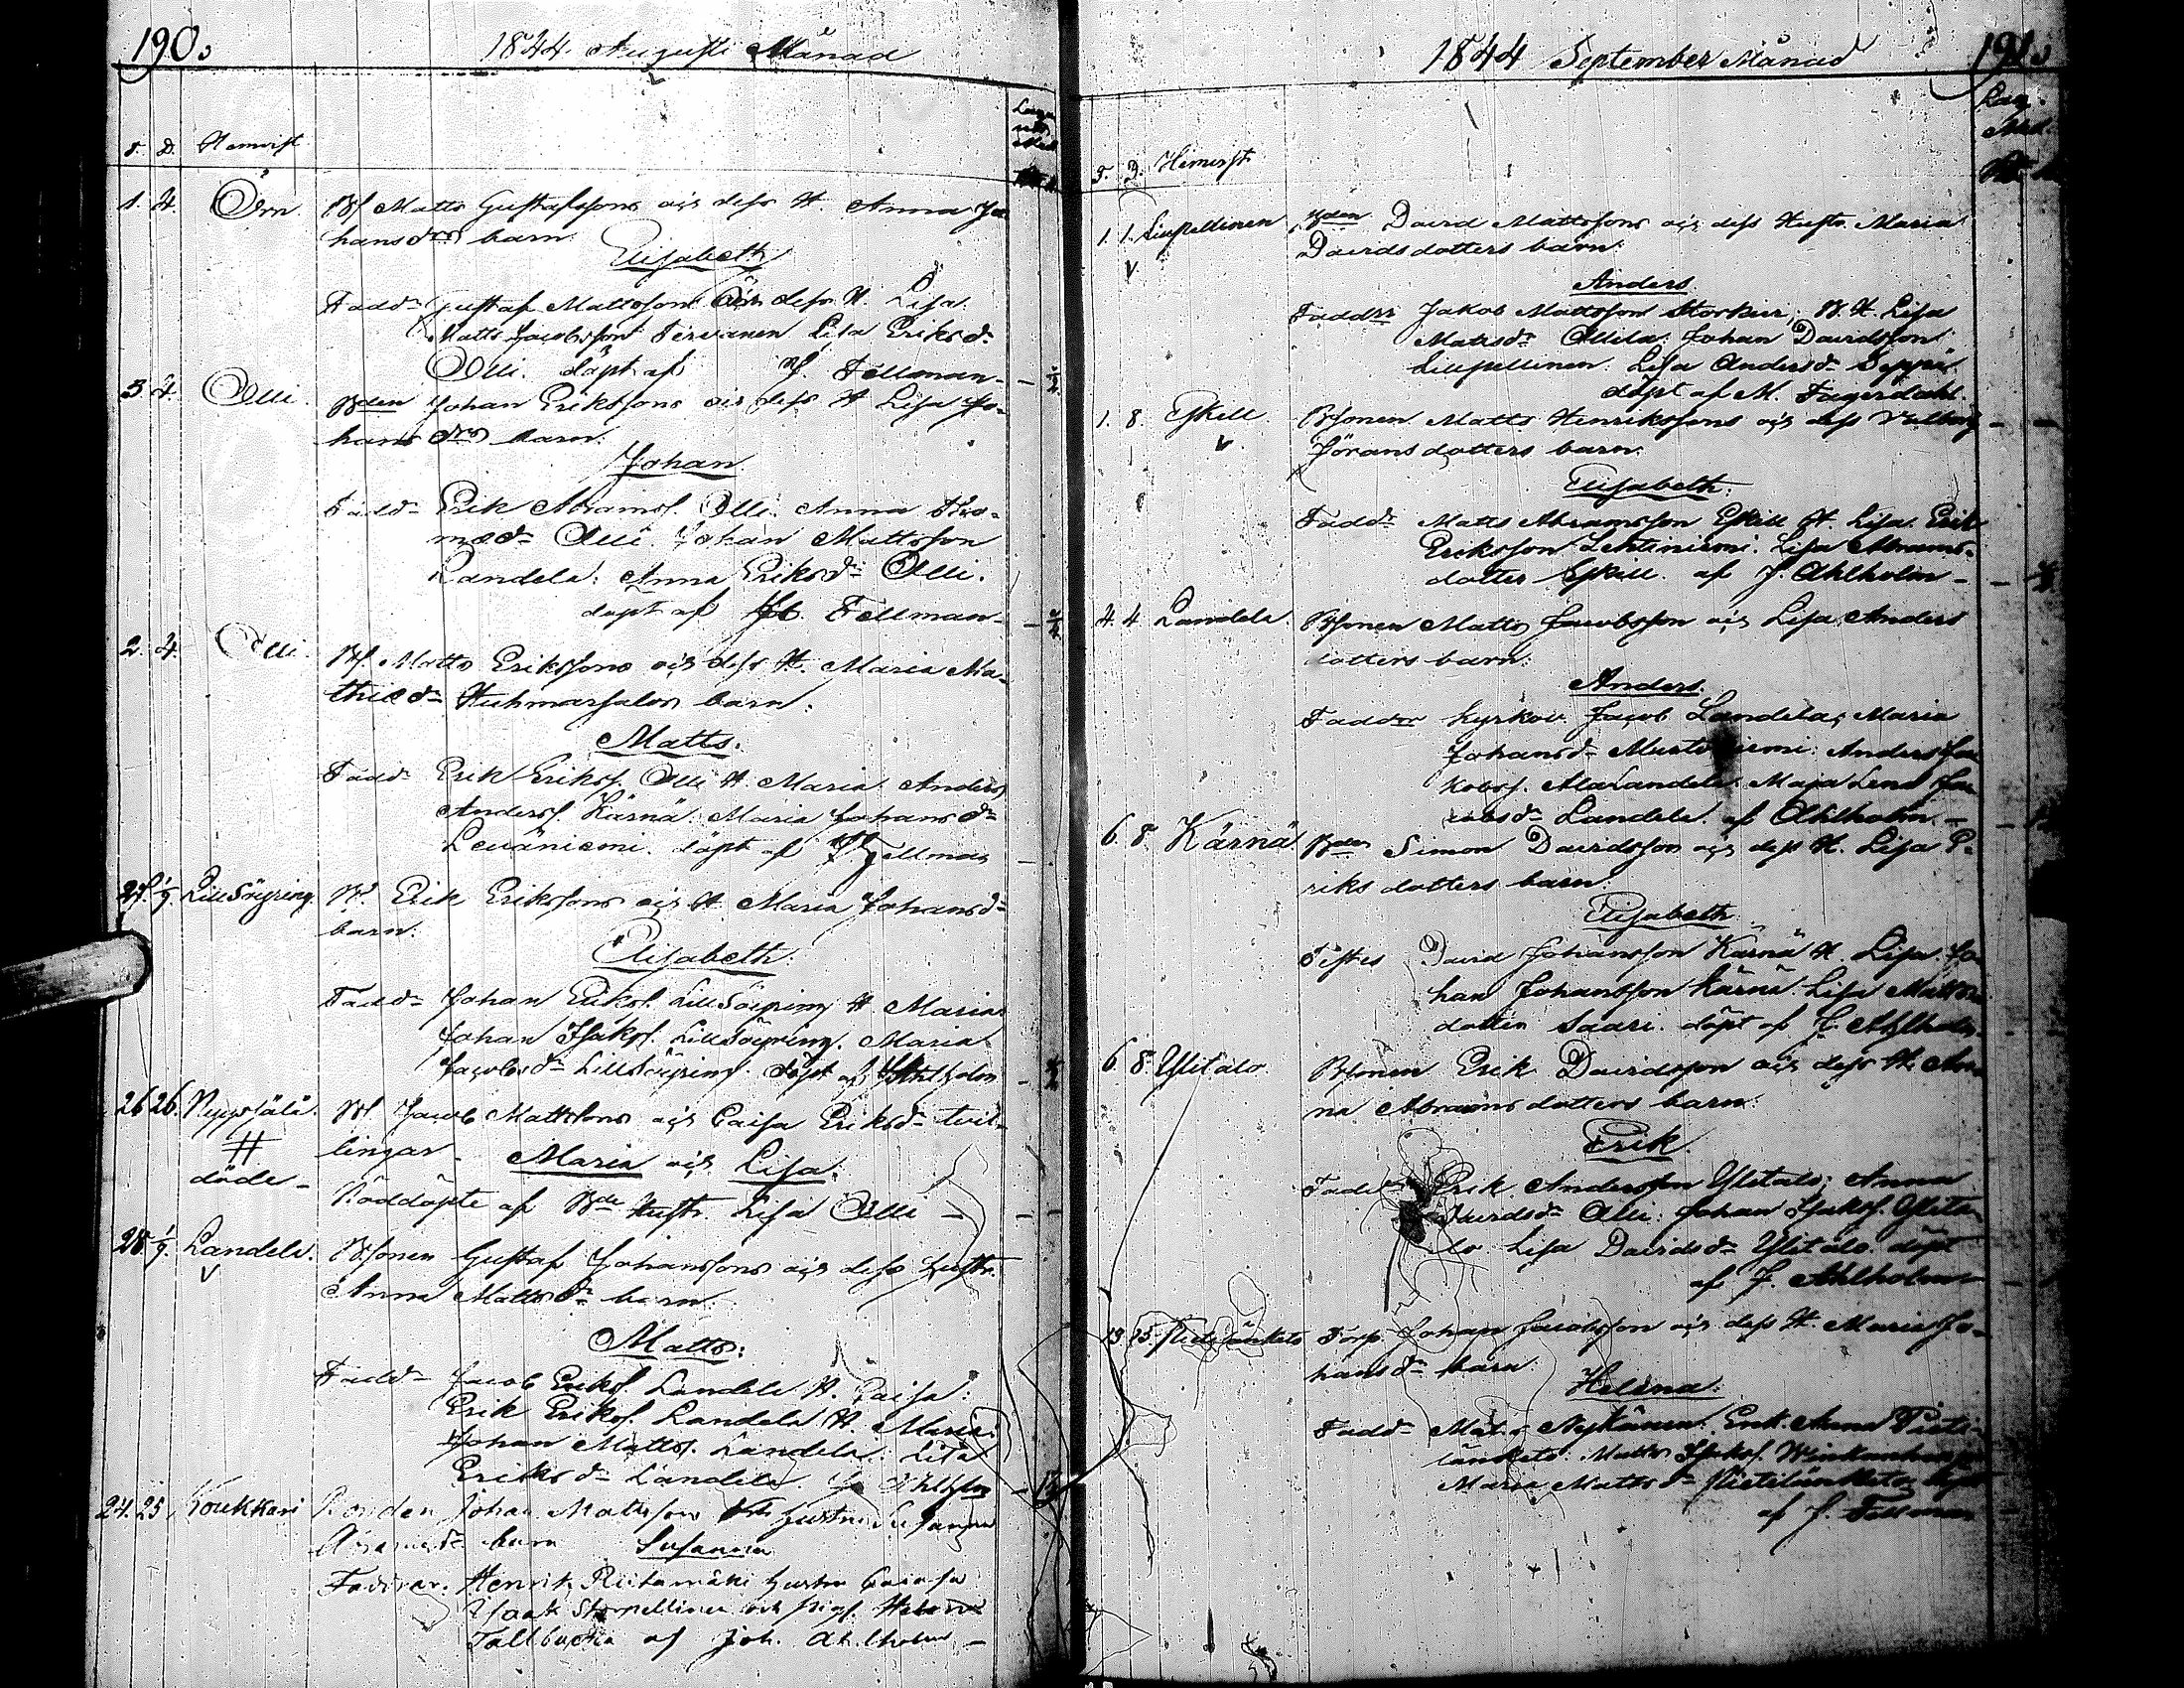 190.
1844. Augusti Månad
F. D. Hemvist
1. 4. Örn. Bs. Matts Gustafssons och dess H. Anna Jo-
hansdrs barn:
Elisabeth
Fadd. Gustaf Mattsson Örn dess H. Lisa.
Matts Jacobsson Tervanen Lisa Eriksdr
Olli. döpt af Fellman
3. 4. Olli. Bden Johan Erikssons och dess H Lisa Jo-
hans drs barn:
Johan
Fadd. Erik Abramss. Olli. Anna
Olli. Johan Mattsson
Landela. Anna Eriksdr Olli.
döpt af Fellman
2. 4. Olli. Bs. Matts Erikssons och dess H. Maria Ma-
thiedr Huhmarsalos barn:
Matts.
Fadd. Erik Erikss. Olli H. Maria. Anders
Anderss. Kärnä. Maria Johansdr
Leväniemi. döpt af Fellman
1/9 Lill Söyring. B. Erik Erikssons och H. Maria Johansdr
barn:
Elisabeth.
Fadd. Johan Erikss. Lill Söyring H. Maria
Johan Isaks. Lill Söyring. Maria
Jacobsdr Lill Söyring. döpt af Ahlholm
26 26. Bs Jacob Mattssons och Caisa Eriksdr tvil-
döde lingar. Maria och Lisa.
Nöddöpte af Bde Hustr. Lisa Olli
28 1/9. Landela. Bsonen Gustaf Johanssons och dess Hustr.
Anna Mattsdr barn.
Matts.
Fadd. Jacob Erikss. Landela H. Caisa:
Erik Erikss. Landela H. Maria.
Johan Matts. Landela. Lisa
Eriksdr Landela. Ahlholm
24. 25 Koukkari Bonden Johan Mattsson hustru Susanna
Abramsdr barn Susanna
Faddrar. Henrik Riitamäki hustru Caisa
Isaak Storpellinen och pig.
Tallbacka af Joh. Ahlholm

1844 September Månad
191.
F. D. Hemvist
1. 1. Lillpellinen Bden David Mattssons och dess Hustr. Maria
Davidsdotters barn:
Anders.
Faddrr Jakob Mattsson Storkur, B. H. Lisa
Matsdr Ollila. Johan Davidsson
Lillpellinen. Lisa Andersdr Seppä
döpt af M. Fagerdahl.
1. 8. Eskill Bsonen Matts Henrikssons och dess Valborg
Jöransdotters barn.
Elisabeth.
Faddr Matts Abramsson Eskill H. Lisa. Erik
Eriksson Lehtiniemi. Lisa Abrams-
dotter Eskill. af J. Ahlholm
4. 4 Landela. Bsonen Matts Jacobsson och Lisa Anders
dotters barn:
Anders.
Faddrr Kyrkov. Jacob Landela, Maria
Johansdr Anders Ja
kobss. Landela. Maja Lena Ja
cobsdr Landela. af Ahlholm
6. 8. Kärnä Bden Simon Davidsson och dess H. Lisa E-
riks dotters barn.
Elisabeth
Testes David Johansson Kärnä H. Lisa. Jo
han Johansson Kärnä Lisa Matts
dotter Saari. döpt af J. Ahlholm
6 8. Ylitalo. Bsonen Erik Davidsson och dess H. An
na Abramsdotters barn:
Erik.
Fadd. Erik Andersson Ylitalo; Anna
Davidsdr Olli. Johan Isaks. Ylita
lo Lisa Davidsdr Ylitalo. döpt
af J. Ahlholm
15 Torp. Johan Jacobsson och dess H. Maria Jo-
hansdr barn
Helena.
Fadd. Nykänen. Enk. Anna Pieti-
länketo. Matts Isaks.
Maria Mattsdr Pietilänketo döpt
af J. Fellman